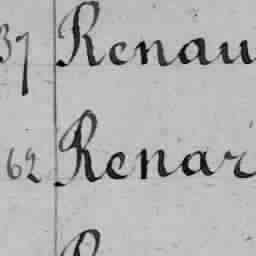 37 Renau
62 Renar